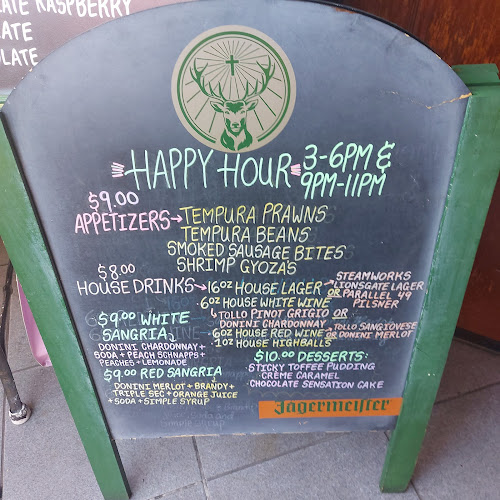 ATE RASPBERRY
ATE
OLATE
HAPPY HOUR 3-6PM &
9PM-11PM
$9.00
APPETIZERS → TEMPURA PRAWNS
TEMPURA BEANS
SMOKED SAUSAGE BITES
SHRIMP GYOZA'S
$8.00
HOUSE DRINKS → 16OZ HOUSE LAGER → STEAMWORKS
LIONSGATE LAGER
OR PARALLEL 49
PILSNER
6OZ HOUSE WHITE WINE
↳ TOLLO PINOT GRIGIO OR
DONINI CHARDONNAY
6OZ HOUSE RED WINE → TOLLO SANGIOVESE
OR DONINI MERLOT
1OZ HOUSE HIGHBALLS
$9.00 WHITE
SANGRIA
DONINI CHARDONNAY +
SODA + PEACH SCHNAPPS +
PEACHES + LEMONADE
$9.00 RED SANGRIA
DONINI MERLOT + BRANDY +
TRIPLE SEC + ORANGE JUICE
+ SODA + SIMPLE SYRUP
$10.00 DESSERTS:
STICKY TOFFEE PUDDING
CRÈME CARAMEL
CHOCOLATE SENSATION CAKE
Jägermeister